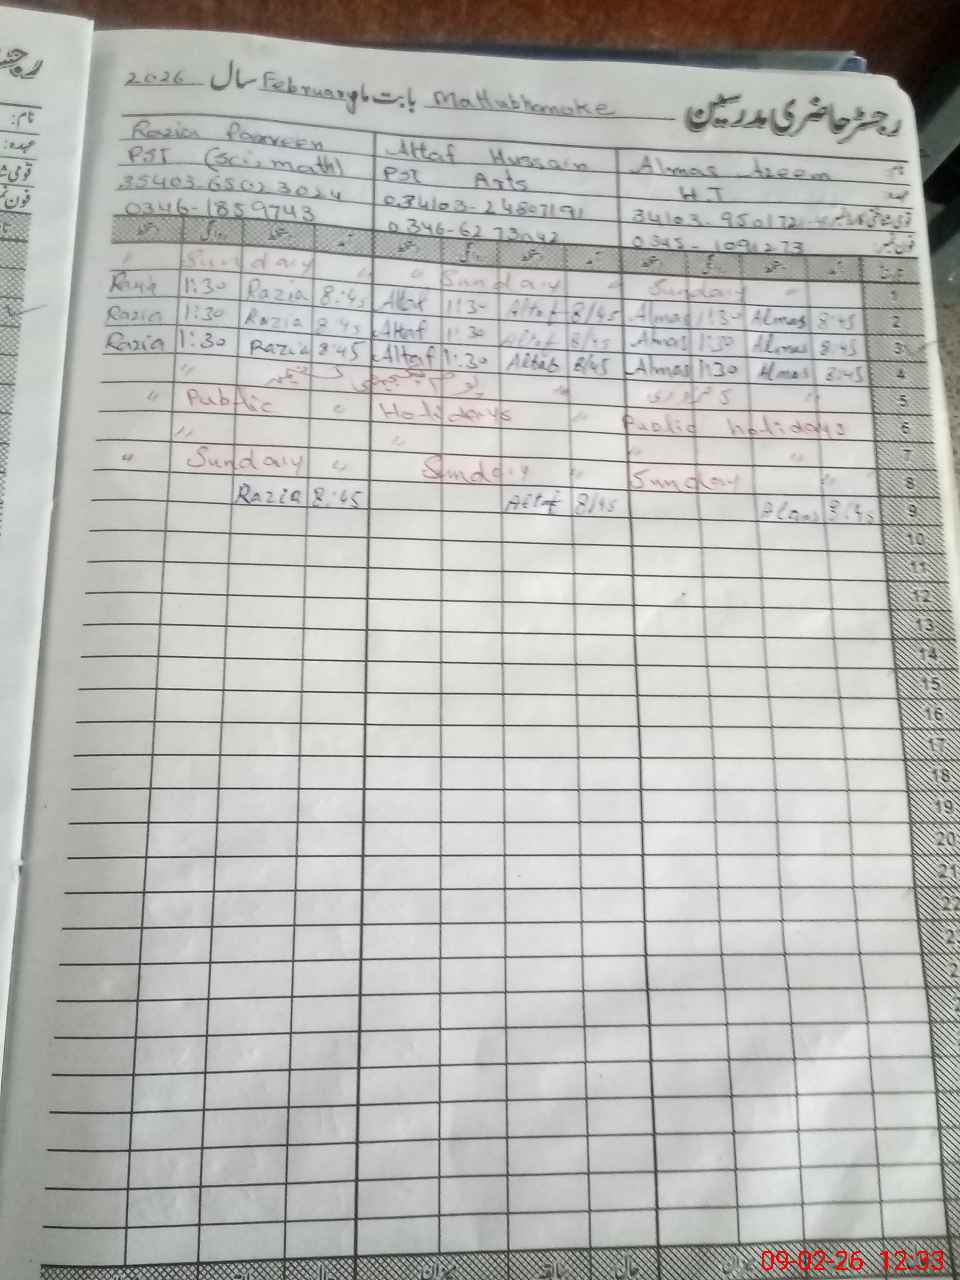 رجسٹر حاضری مدرسین Mattubhomoke بابت ماہ February سال 2026
Razia Parveen Altaf Hussain Almas Azeem نام
PST (sci, math) PST Arts H.T عہدہ
35403-6502302 34103- 34103-950172
0346-1859743 0346-6273042 0345-1091273 فون نمبر
" Sunday " " Sunday " Sunday " 1
Razia 1:30 Razia 8:45 Altaf 1:30 Altaf 8/45 Almas 1:30 Almas 8:45 2
Razia 1:30 Razia 8:45 Altaf 1:30 Altaf 8/45 Almas 1:30 Almas 8:45 3
Razia 1:30 Razia 8:45 Altaf 1:30 Altaf 8/45 Almas 1:30 Almas 8:45 4
" یوم یکجہتی کشمیر " 5
" Public " Holidays " Public holidays 6
" " " " 7
" Sunday " Sunday " Sunday " 8
Razia 8:45 Altaf 8/45 Almas 8:45 9
10
11
12
13
14
15
16
17
18
19
20
21
22
09-02-26 12:33